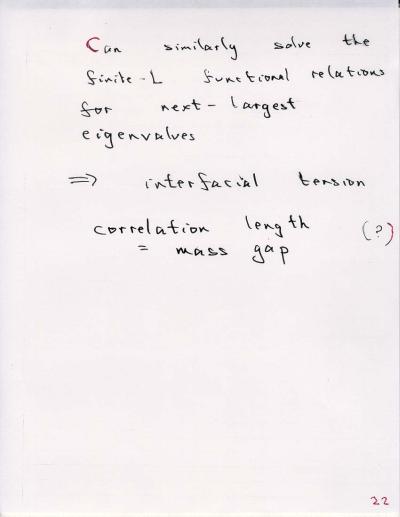 Can similarly solve the
finite-L functional relations
for next-largest
eigenvalues
⇒ interfacial tension
correlation length (?)
= mass gap
22